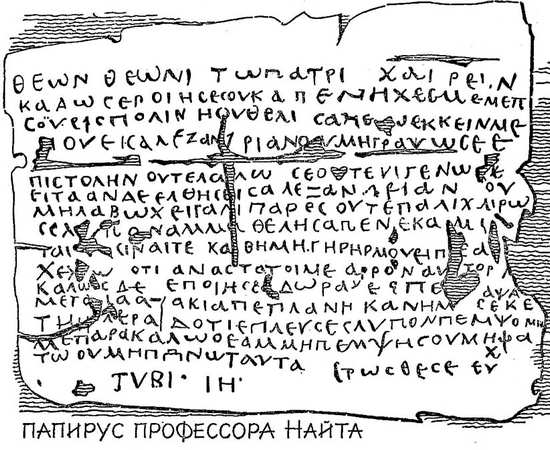 ΘΕΩΝ ΘΕΩΝΙ ΤΩ ΠΑΤΡΙ ΧΑΙΡΕΙΝ
ΚΑΛΩΣ ΕΠΟΙΗΣΕΣ ΟΥΚ ΑΠΕΝΗΧΕΣ ΜΕ ΜΕΤ Ε
ΣΟΥ ΕΙΣ ΠΟΛΙΝ Η ΟΥ ΘΕΛΙΣ ΑΠΕΝΕΚΚΕΙΝ ΜΕ
ΣΟΥ ΕΙΣ ΑΛΕΞΑΝΔΡΙΑΝ ΟΥ ΜΗ ΓΡΑΨΩ ΣΕ Ε
ΠΙΣΤΟΛΗΝ ΟΥΤΕ ΛΑΛΩ ΣΕ ΟΥΤΕ ΥΙΓΕΝΩ ΣΕ
ΕΙΤΑ ΑΝ ΔΕ ΕΛΘΗΣ ΕΙΣ ΑΛΕΞΑΝΔΡΙΑΝ ΟΥ
ΜΗ ΛΑΒΩ ΧΕΙΡΑΝ ΠΑΡΑ ΣΟΥ ΟΥΤΕ ΠΑΛΙ ΧΑΙΡΩ
ΣΕ ΑΜ ΜΗ ΘΕΛΗΣ ΑΠΕΝΕΚΑΙ
ΚΑΙ Η ΜΗΤΗΡ ΜΟΥ ΕΙΠΕ Α
ΟΤΙ ΑΝΑΣΤΑΤΟΙ ΜΕ ΑΡΡΟΝ ΑΥΤΟΝ
ΚΑΛΩΣ ΔΕ ΕΠΟΙΗΣΕΣ ΔΩΡΑ ΕΠΕ
ΜΕΓΑΛΑ ΑΡΑΚΙΑ ΠΕΠΛΑΝΗΚΑΝ ΗΜΑΣ ΕΚΕ
ΤΗ ΗΜΕΡΑ ΟΤΙ ΕΠΛΕΥΣΕΣ ΛΥΠΟΝ ΠΕΜΨΟΝ
ΜΕ ΠΑΡΑΚΑΛΩ ΣΕ ΑΜ ΜΗ ΠΕΜΨΗΣ ΟΥ ΜΗ ΦΑ
ΓΩ ΟΥ ΜΗ ΠΕΙΝΩ ΤΑΥΤΑ
ΕΡΩΣΘΕ ΣΕ ΕΥΧ
ΤΥΒΙ · ΙΗ ·
ПАПИРУС ПРОФЕССОРА НАЙТА